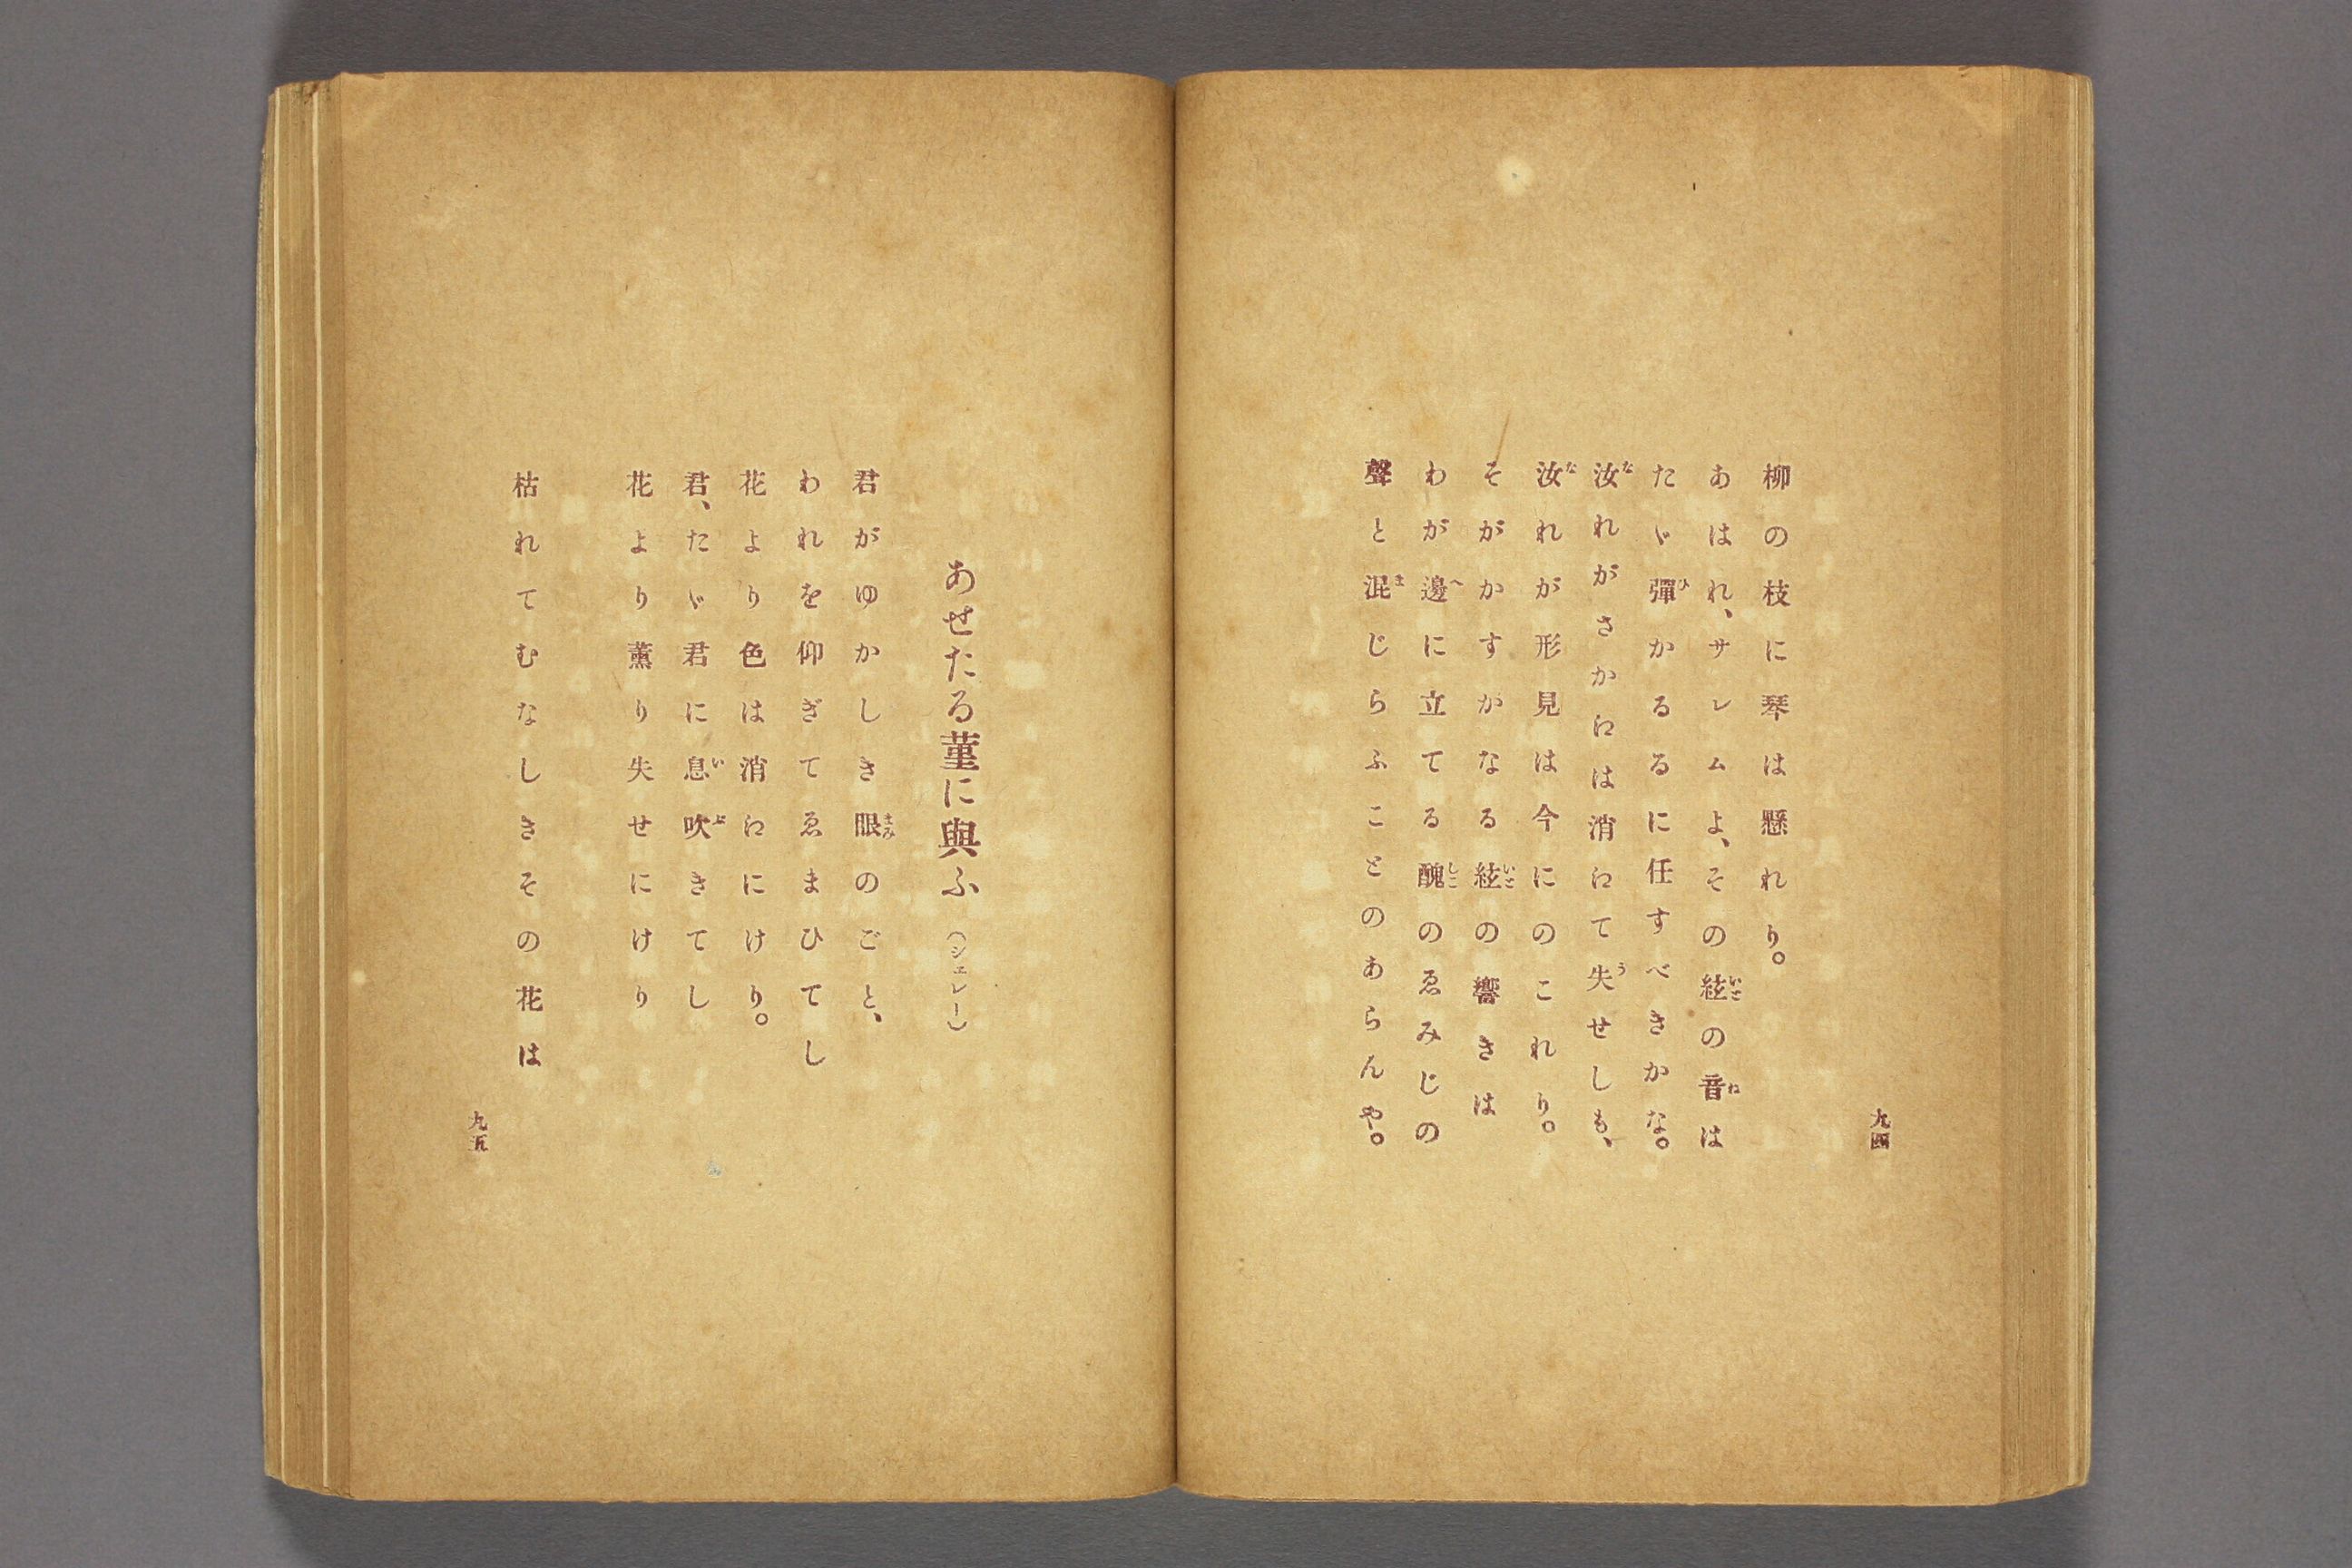 九四
柳の枝に琴は懸れり。
あはれ、サレムよ、その絃の音は
たゞ彈かるるに任すべきかな。
汝れがさかえは消えて失せしも、
汝れが形見は今にのこれり。
そがかすかなる絃の響きは
わが邊に立てる醜のゑみじの
聲と混じらふことのあらんや。
あせたる菫に與ふ（シェレー）
君がゆかしき眼のごと、
われを仰ぎてゑまひてし
花より色は消えにけり。
君、たゞ君に息吹きてし
花より薫り失せにけり
枯れてむなしきその花は
九五